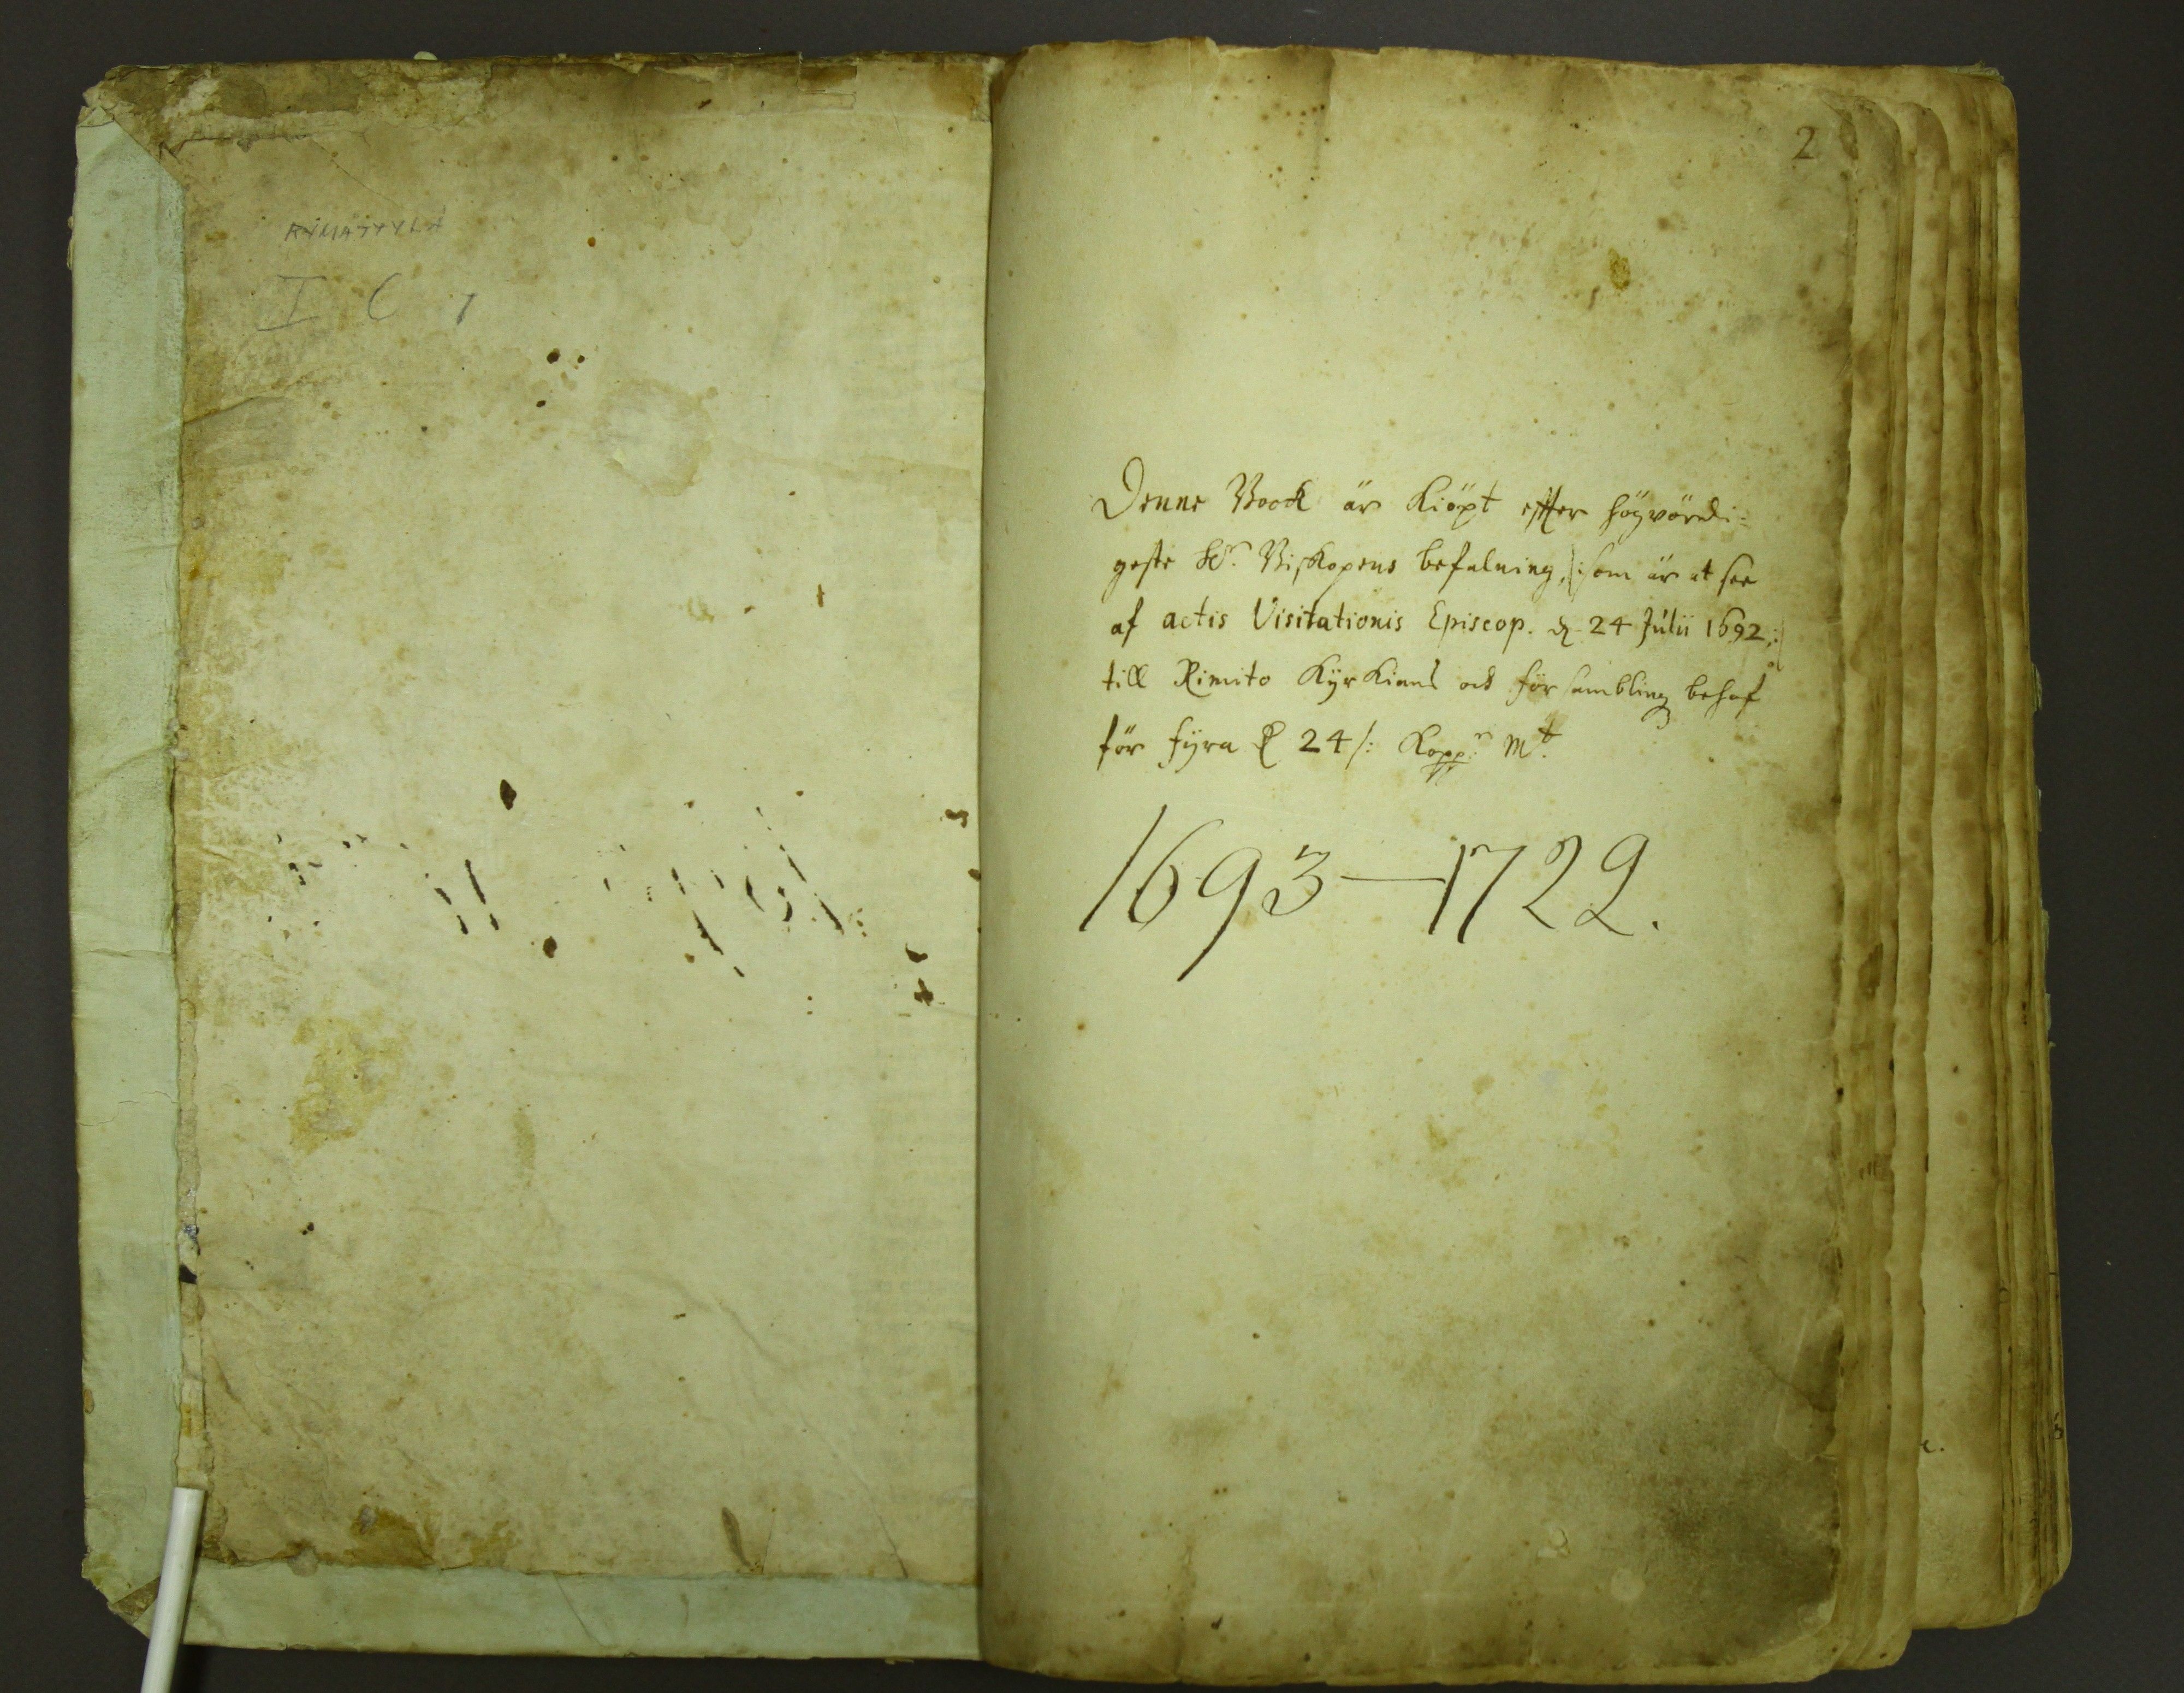 RYMÄTTYLÄ
I C 1
2
Denne Boock är kiöpt effter högvördi-
geste Hr. Biskopens befalning, /: som är at see
af actis Visitationis Episcop. d. 24 Julii 1692 :/
till Rimito Kyrkians och församblingz behof
för fyra 24 /: Kopp.r Mt.
1693—1722.